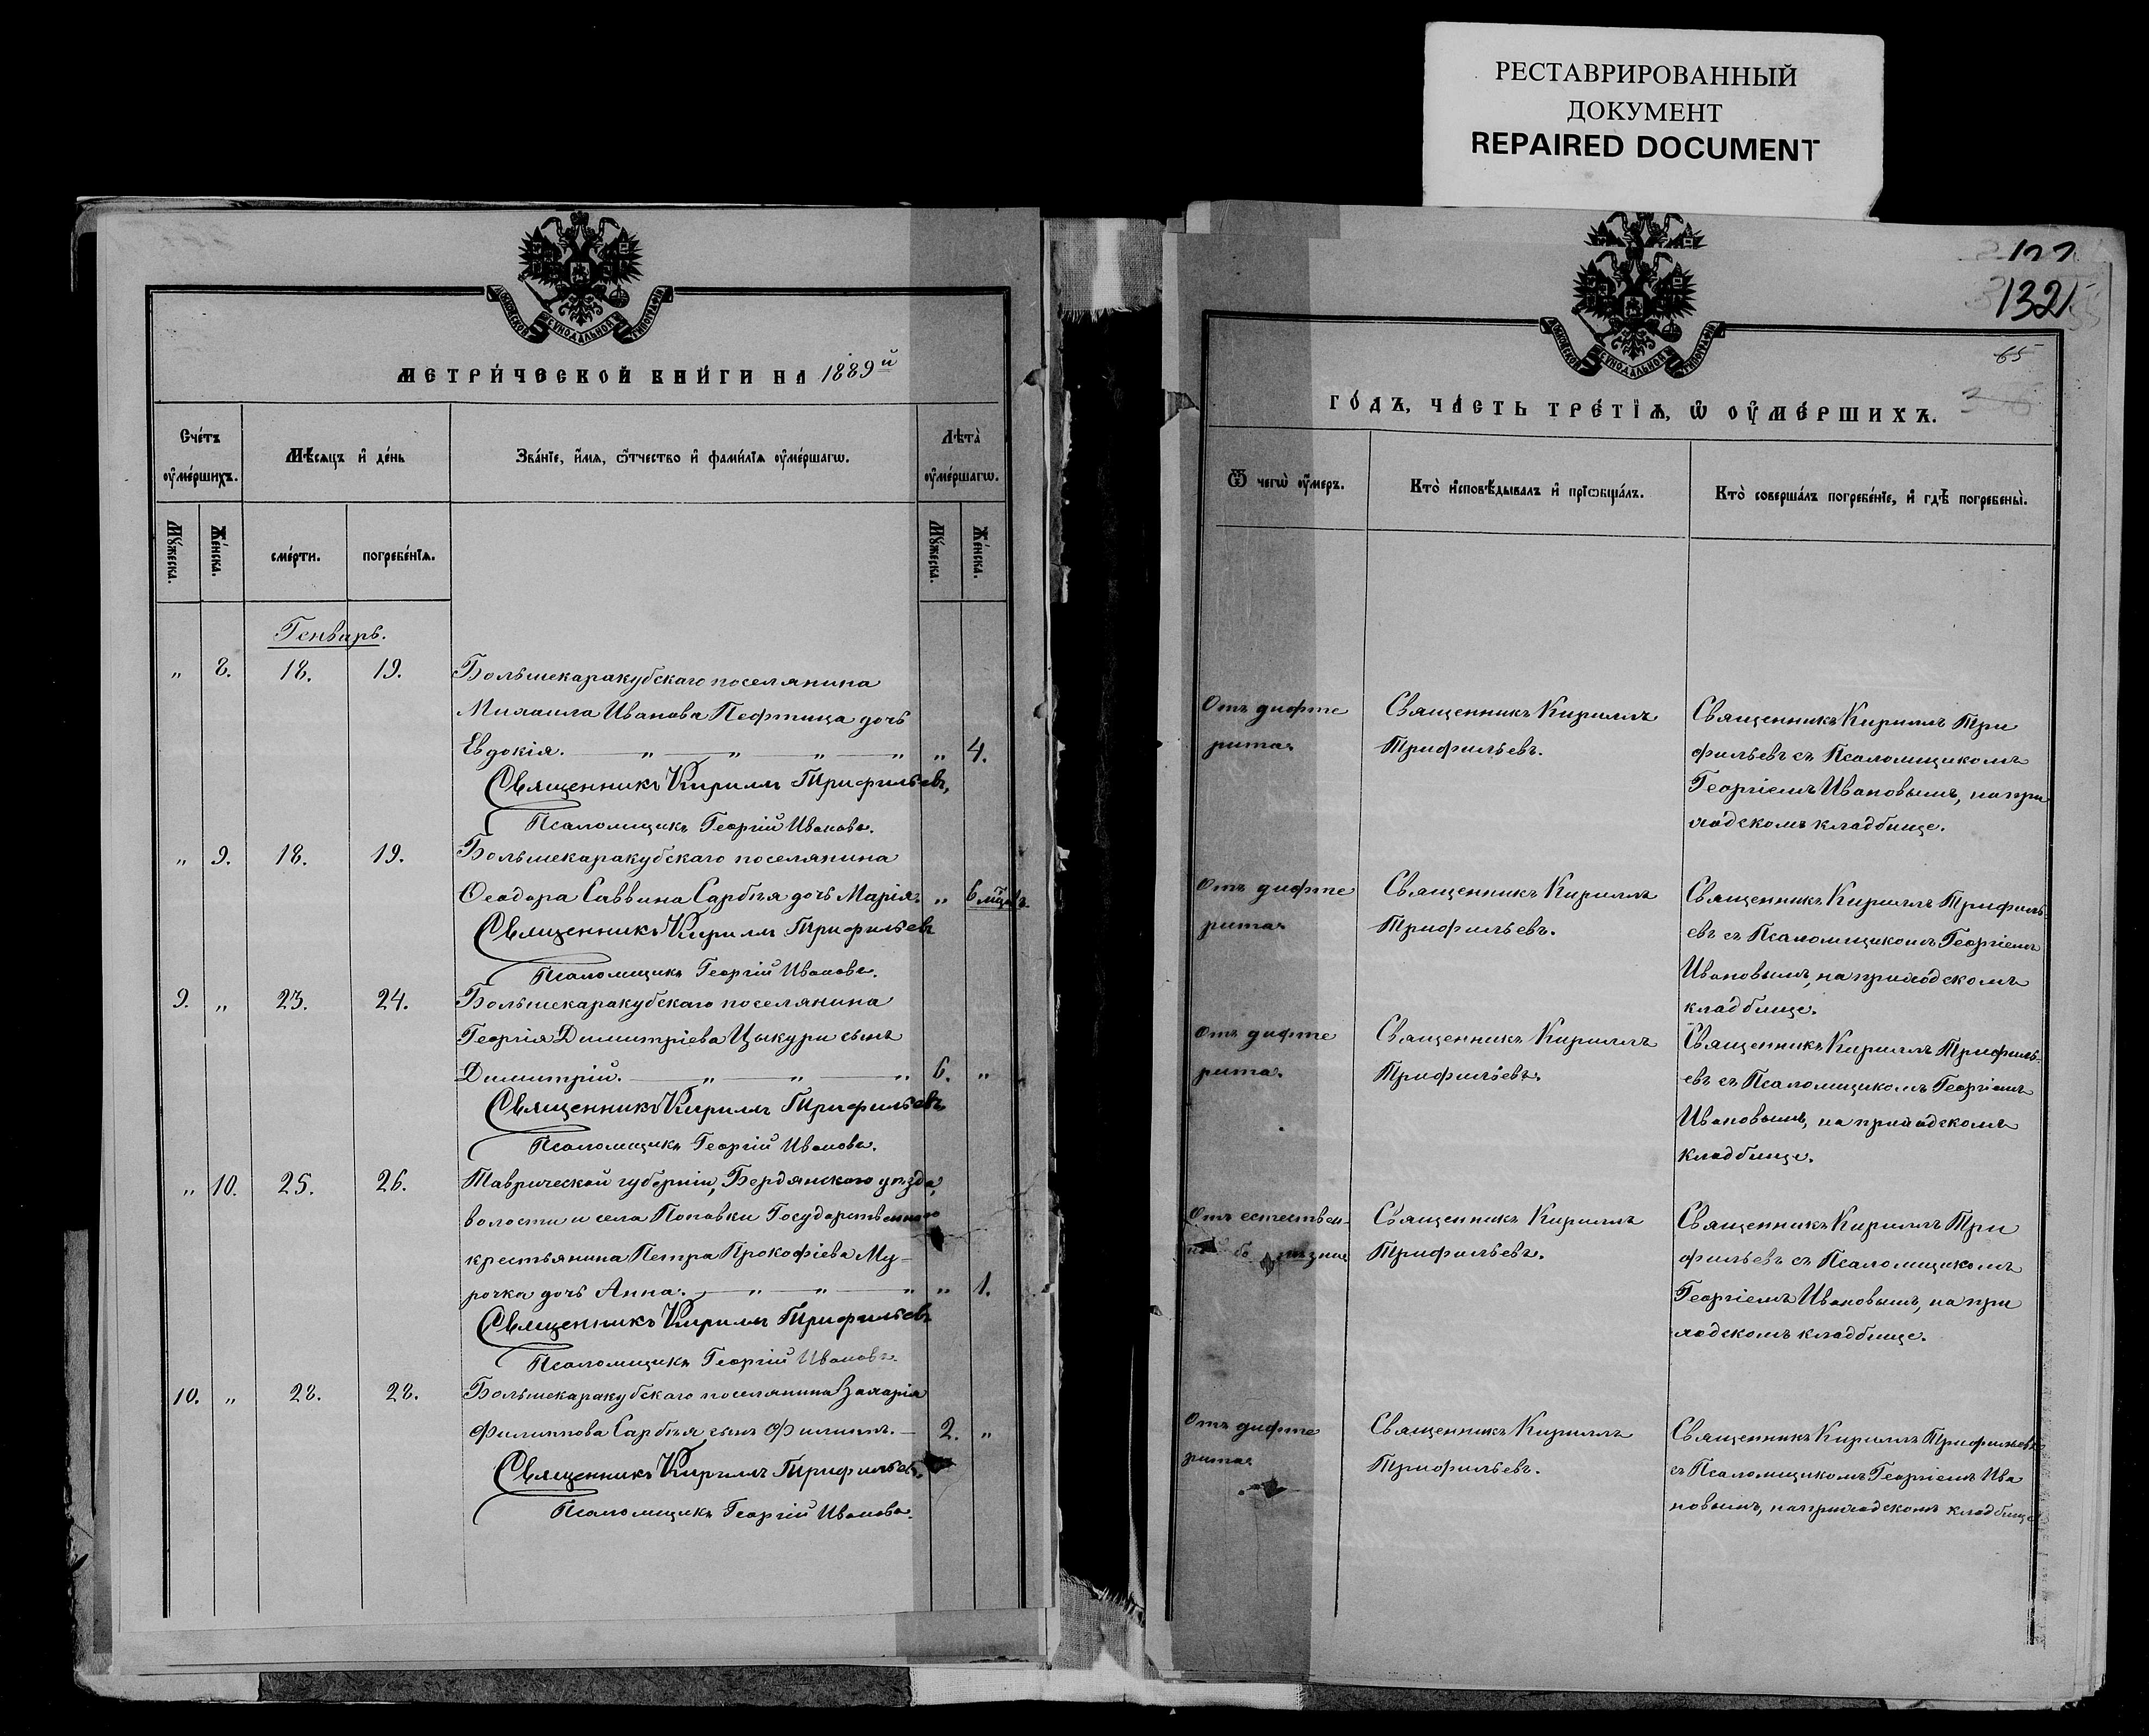 РЕСТАВРИРОВАННЫЙ
ДОКУМЕНТ
REPAIRED DOCUMENT
МОСКОВСКОЙ СѴНОДАЛЬНОЙ ТИПОГРАФІИ
МЕТРИ́ЧЕСКОЙ КНИ́ГИ НА 1889й
Сче́тъ ѹ҆ме́ршихъ.
Мѣ́сяцъ и҆ де́нь
Зва́нїе, и҆́мя, ѻ҆́тчество и҆ фами́лїя ѹ҆ме́ршагѡ.
Лѣта̀ ѹ҆ме́ршагѡ.
Мꙋ́жеска.
Же́нска.
сме́рти.
погребе́нїѧ.
Мꙋ́жеска.
Же́нска.
Генварь.
„ 8. 18. 19. Большекаракубскаго поселянина
Михаила Иванова Пефтица дочь
Евдокія. — „ — „ — „ — „ „ 4.
Священникъ Кирилъ Трифильевъ,
Псаломщикъ Георгій Ивановъ.
„ 9. 18. 19. Большекаракубскаго поселянина
Ѳеодора Саввина Сарбѣя дочь Марія. „ 6 мцевъ.
Священникъ Кирилъ Трифильевъ
Псаломщикъ Георгій Ивановъ.
9. „ 23. 24. Большекаракубскаго поселянина
Георгія Димитріева Цыкури сынъ
Димитрій. — „ — „ — „ 6. „
Священникъ Кирилъ Трифильевъ
Псаломщикъ Георгій Ивановъ.
„ 10. 25. 26. Таврической губерніи, Бердянскаго уѣзда,
волости и села Поповки Государственнаго
крестьянина Петра Прокофіева Му-
рочка дочь Анна. — „ — „ — „ „ 1.
Священникъ Кирилъ Трифильевъ
Псаломщикъ Георгій Ивановъ.
10. „ 28. 28. Большекаракубскаго поселянина Захарія
Филиппова Сарбѣя сынъ Филиппъ. — 2. „
Священникъ Кирилъ Трифильевъ.
Псаломщикъ Георгій Ивановъ.
132
65
МОСКОВСКОЙ СѴНОДАЛЬНОЙ ТИПОГРАФІИ
ГО́ДЪ, ЧА́СТЬ ТРЕ́ТЇѦ, Ѡ҆ ОУ҆МЕ́РШИХЪ.
Ѿ чегѡ̀ ѹ҆́меръ.
Кто̀ и҆сповѣ́дывалъ и҆ прїѡбща́лъ.
Кто̀ соверша́лъ погребе́нїе, и҆ гдѣ̀ погребены̀.
Отъ дифте
рита.
Священникъ Кириллъ
Трифильевъ.
Священникъ Кириллъ Три
фильевъ съ Псаломщикомъ
Георгіемъ Ивановымъ, на при
ходскомъ кладбище.
Отъ дифте
рита.
Священникъ Кириллъ
Трифильевъ.
Священникъ Кириллъ Трифиль-
евъ съ Псаломщикомъ Георгіемъ
Ивановымъ, на приходскомъ
кладбище.
Отъ дифте
рита.
Священникъ Кириллъ
Трифильевъ.
Священникъ Кириллъ Трифиль-
евъ съ Псаломщикомъ Георгіемъ
Ивановымъ, на приходскомъ
кладбище.
Отъ естествен-
Священникъ Кириллъ
Трифильевъ.
Священникъ Кириллъ Три
фильевъ съ Псаломщикомъ
Георгіемъ Ивановымъ, на при
ходскомъ кладбище.
Отъ дифте
рита.
Священникъ Кириллъ
Трифильевъ.
Священникъ Кириллъ Трифильевъ
съ Псаломщикомъ Георгіемъ Ива
новымъ, на приходскомъ кладбище